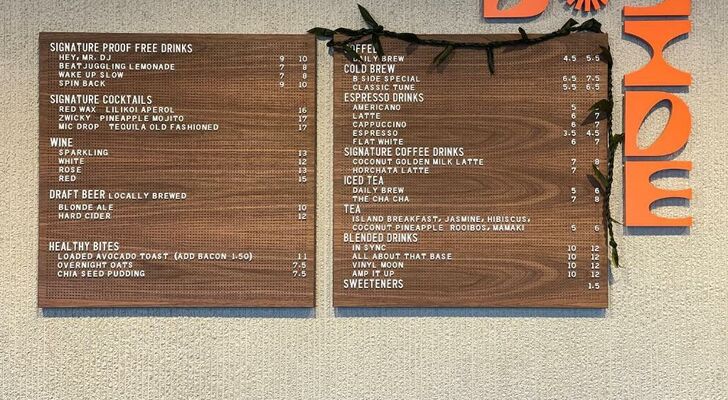 SIGNATURE PROOF FREE DRINKS
HEY, MR. DJ 9 10
BEATJUGGLING LEMONADE 7 8
WAKE UP SLOW 7 8
SPIN BACK 9 10
SIGNATURE COCKTAILS
RED WAX LILIKOI APEROL 16
ZWICKY PINEAPPLE MOJITO 17
MIC DROP TEQUILA OLD FASHIONED 17
WINE
SPARKLING 13
WHITE 12
ROSE 13
RED 15
DRAFT BEER LOCALLY BREWED
BLONDE ALE 10
HARD CIDER 12
HEALTHY BITES
LOADED AVOCADO TOAST (ADD BACON 1.50) 11
OVERNIGHT OATS 7.5
CHIA SEED PUDDING 7.5
COFFEE
DAILY BREW 4.5 5.5
COLD BREW
B SIDE SPECIAL 6.5 7.5
CLASSIC TUNE 5.5 6.5
ESPRESSO DRINKS
AMERICANO 5
LATTE 6 7
CAPPUCCINO 6 7
ESPRESSO 3.5 4.5
FLAT WHITE 6 7
SIGNATURE COFFEE DRINKS
COCONUT GOLDEN MILK LATTE 7 8
HORCHATA LATTE 7
ICED TEA
DAILY BREW 5 6
THE CHA CHA 7 8
TEA
ISLAND BREAKFAST, JASMINE, HIBISCUS,
COCONUT PINEAPPLE ROOIBOS, MAMAKI 5 6
BLENDED DRINKS
IN SYNC 10 12
ALL ABOUT THAT BASE 10 12
VINYL MOON 10 12
AMP IT UP 10 12
SWEETENERS 1.5
SIDE